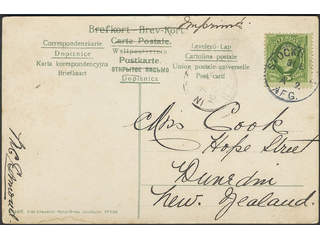 Brefkort - Brev-Kort
Imprimé
Carte Postale.
Correspondenzkarte
Dopisnice
Karta korespondencyjna
Briefkaart
Weltpostverein
Postkarte
ОТКРЫТОЕ ПИСЬМО
Dopisnica
Levelező-Lap
Cartolina postale
Union postale universelle
Post card
STOCKH
AFG.
Miss Cook
Hope Street
Dunedin
New Zealand.